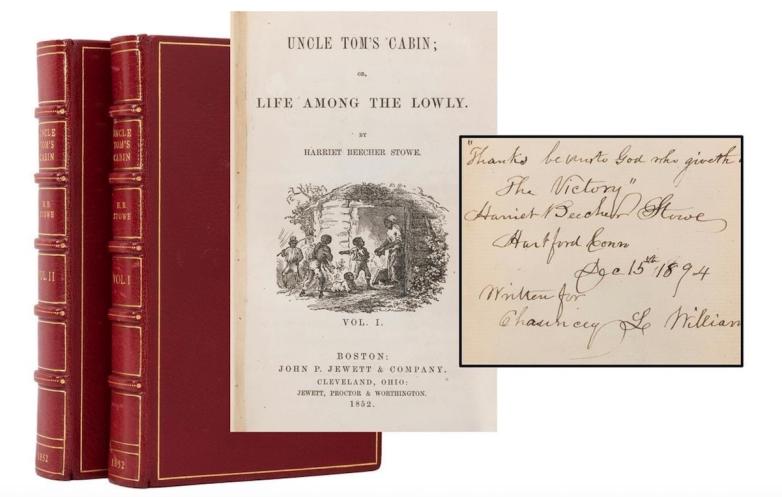 UNCLE
TOM'S
CABIN
H. B.
STOWE
VOL. II
1852
UNCLE
TOM'S
CABIN
H. B.
STOWE
VOL. I
1852
UNCLE TOM'S CABIN;
OR,
LIFE AMONG THE LOWLY.
BY
HARRIET BEECHER STOWE.
VOL. I.
BOSTON:
JOHN P. JEWETT & COMPANY.
CLEVELAND, OHIO:
JEWETT, PROCTOR & WORTHINGTON.
1852.
"Thanks be unto God who giveth
The Victory"
Harriet Beecher Stowe
Hartford Conn
Dec 15th 1894
Written for
Chauncey L William